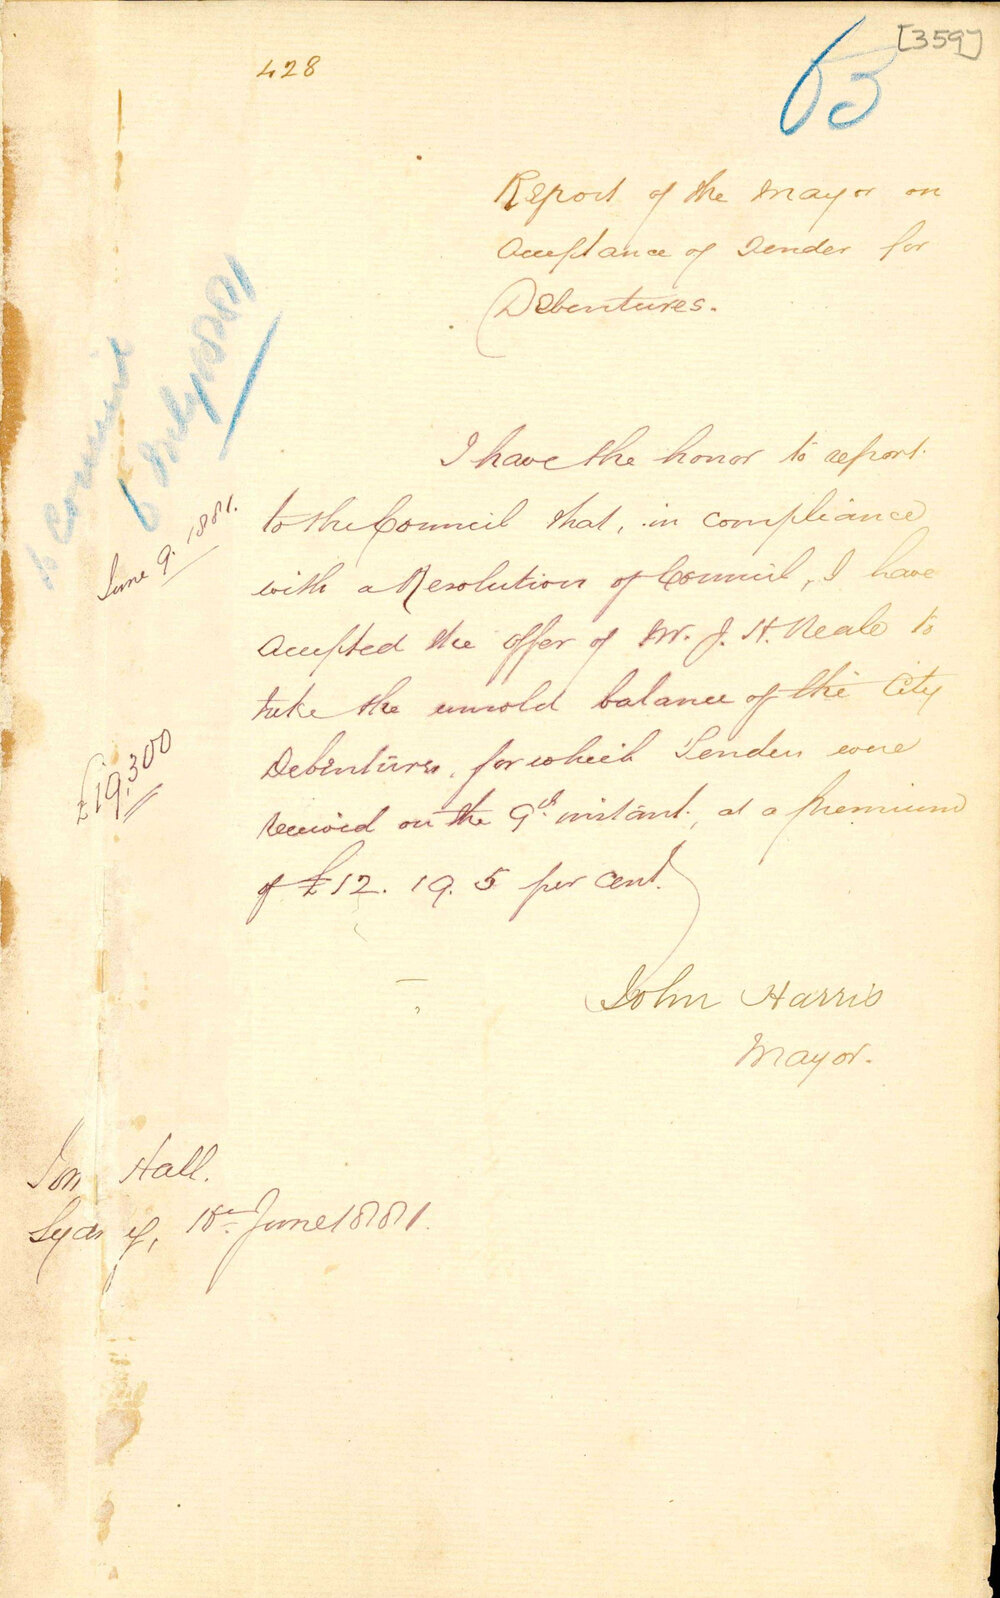 [359]
63
428
Report of the Mayor on
Acceptance of Tender for
Debentures.
to Council
6 July 1881
I have the honor to report
to the Council that, in compliance
June 9. 1881.
with a Resolution of Council, I have
accepted the offer of Mr. J. H. Neale to
take the unsold balance of the City
£19,300
Debentures, for which Tenders were
received on the 9th instant, at a premium
of £12. 19. 5 per cent.
John Harris
Mayor.
Town Hall.
Sydney, 18th June 1881.